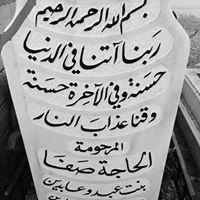 بسم الله الرحمن الرحيم
ربنا آتنا في الدنيا
حسنة وفي الآخرة حسنة
وقنا عذاب النار
المرحومة
الحاجة صفا
بنت عبدو عابدين